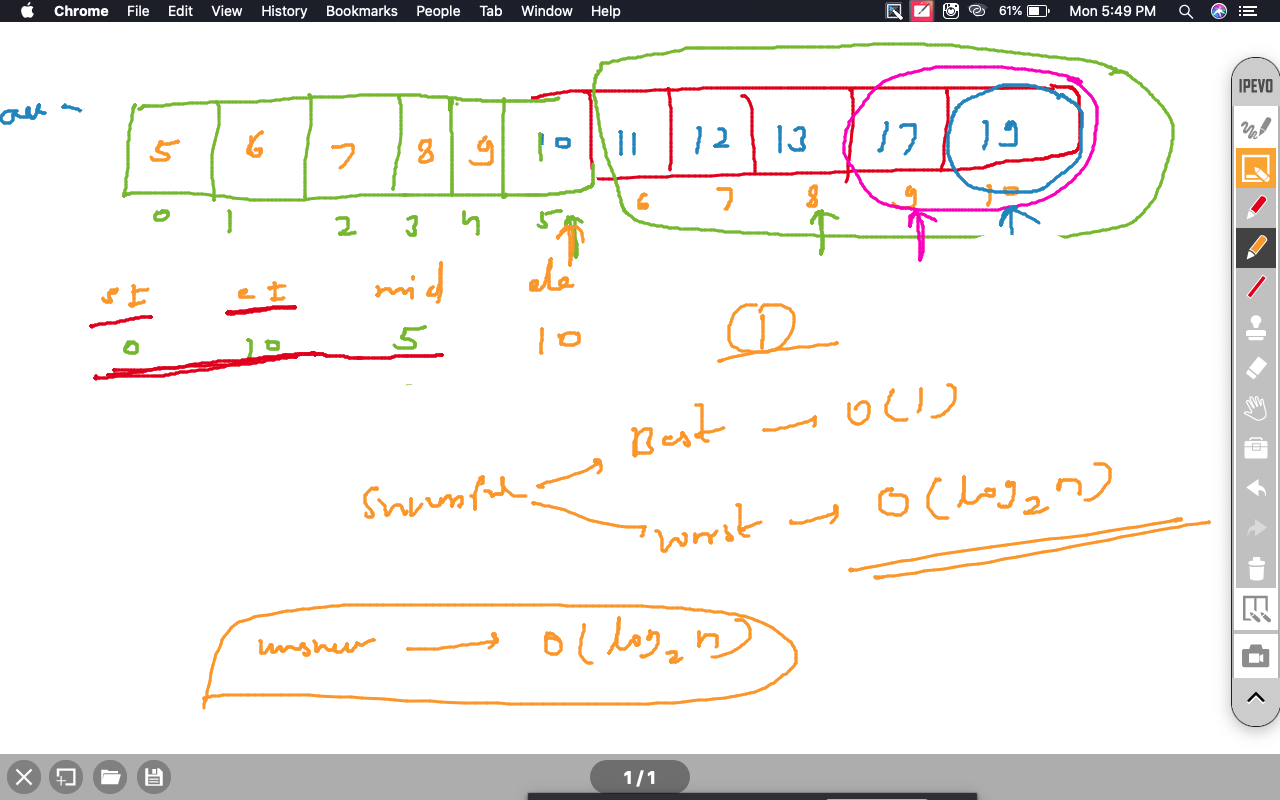 Chrome File Edit View History Bookmarks People Tab Window Help 61% Mon 5:49 PM
IPEVO
arr
5 6 7 8 9 10 11 12 13 17 19
0 1 2 3 4 5 6 7 8 9 10
st et mid ele
0 10 5 10
1
Best → O(1)
Successful
worst → O(log₂n)
→ O(log₂n)
1/1